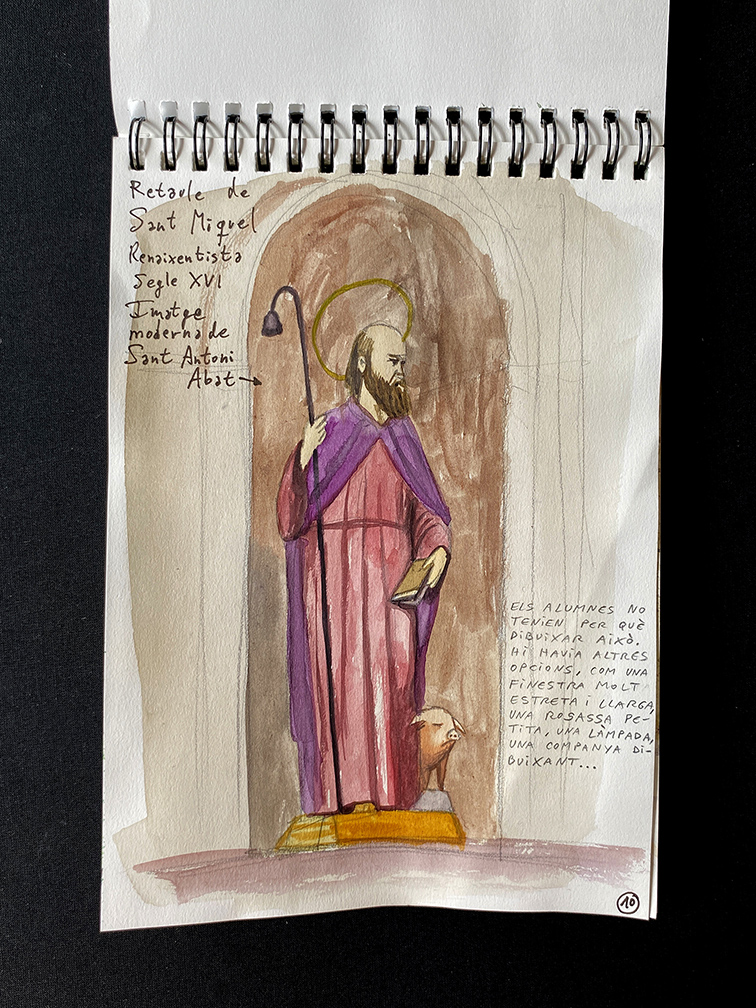 Retaule de
Sant Miquel
Renaixentista
Segle XVI
Imatge
moderna de
Sant Antoni
Abat →
ELS ALUMNES NO
TENIEN PER QUÈ
DIBUIXAR AIXÒ.
HI HAVIA ALTRES
OPCIONS, COM UNA
FINESTRA MOLT
ESTRETA I LLARGA,
UNA ROSASSA PE-
TITA, UNA LÀMPADA,
UNA COMPANYA DI-
BUIXANT...
10